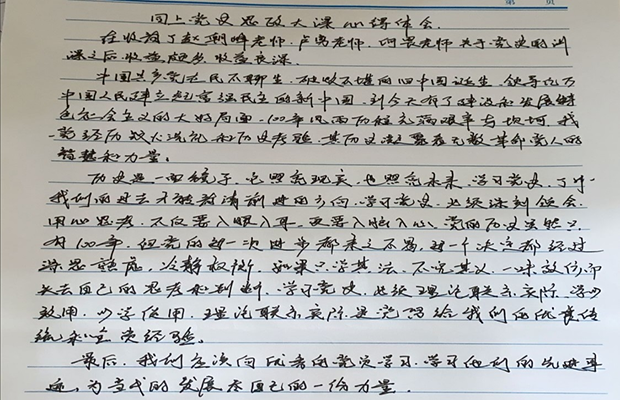 同上党史思政大课心得体会.
在收看了赵朝峰老师.卢勇老师.何云老师关于党史的讲
课之后收益颇多.收益良深.
中国共产党在民不聊生.破败不堪的旧中国诞生.领导亿万
中国人民建立起富强民主的新中国.到今天有了建设和发展特
色社会主义的大好局面.100年风雨历程充满艰辛与坎坷.我
党经历数次洗礼和历史考验.其历史凝聚着无数革命党人的
智慧和力量。
历史是一面镜子.它照亮现实.也照亮未来.学习党史.了解
我们的过去才能看清前进的方向.学习党史.必须深刻领会.
用心思考.不仅要入眼入耳.更要入脑入心.党的历史虽然只
有100年.但党的每一次进步都来之不易.每一个决定都经过
深思熟虑.冷静权衡.如果只学其法.不究其义.一味效仿.即
失去自己的思考和判断.学习党史.必须理论联系实际.学以
致用.以学促用.理论联系实际是党留给我们的优良传
统和宝贵经验.
最后.我们应该向优秀的党员学习.学习他们的先进事
迹.为当代的发展尽自己的一份力量.